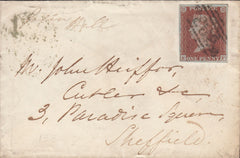 Mr. John Heiffor,
Cutler &c
3, Paradise Square,
Sheffield.
POSTAGE
ONE PENNY